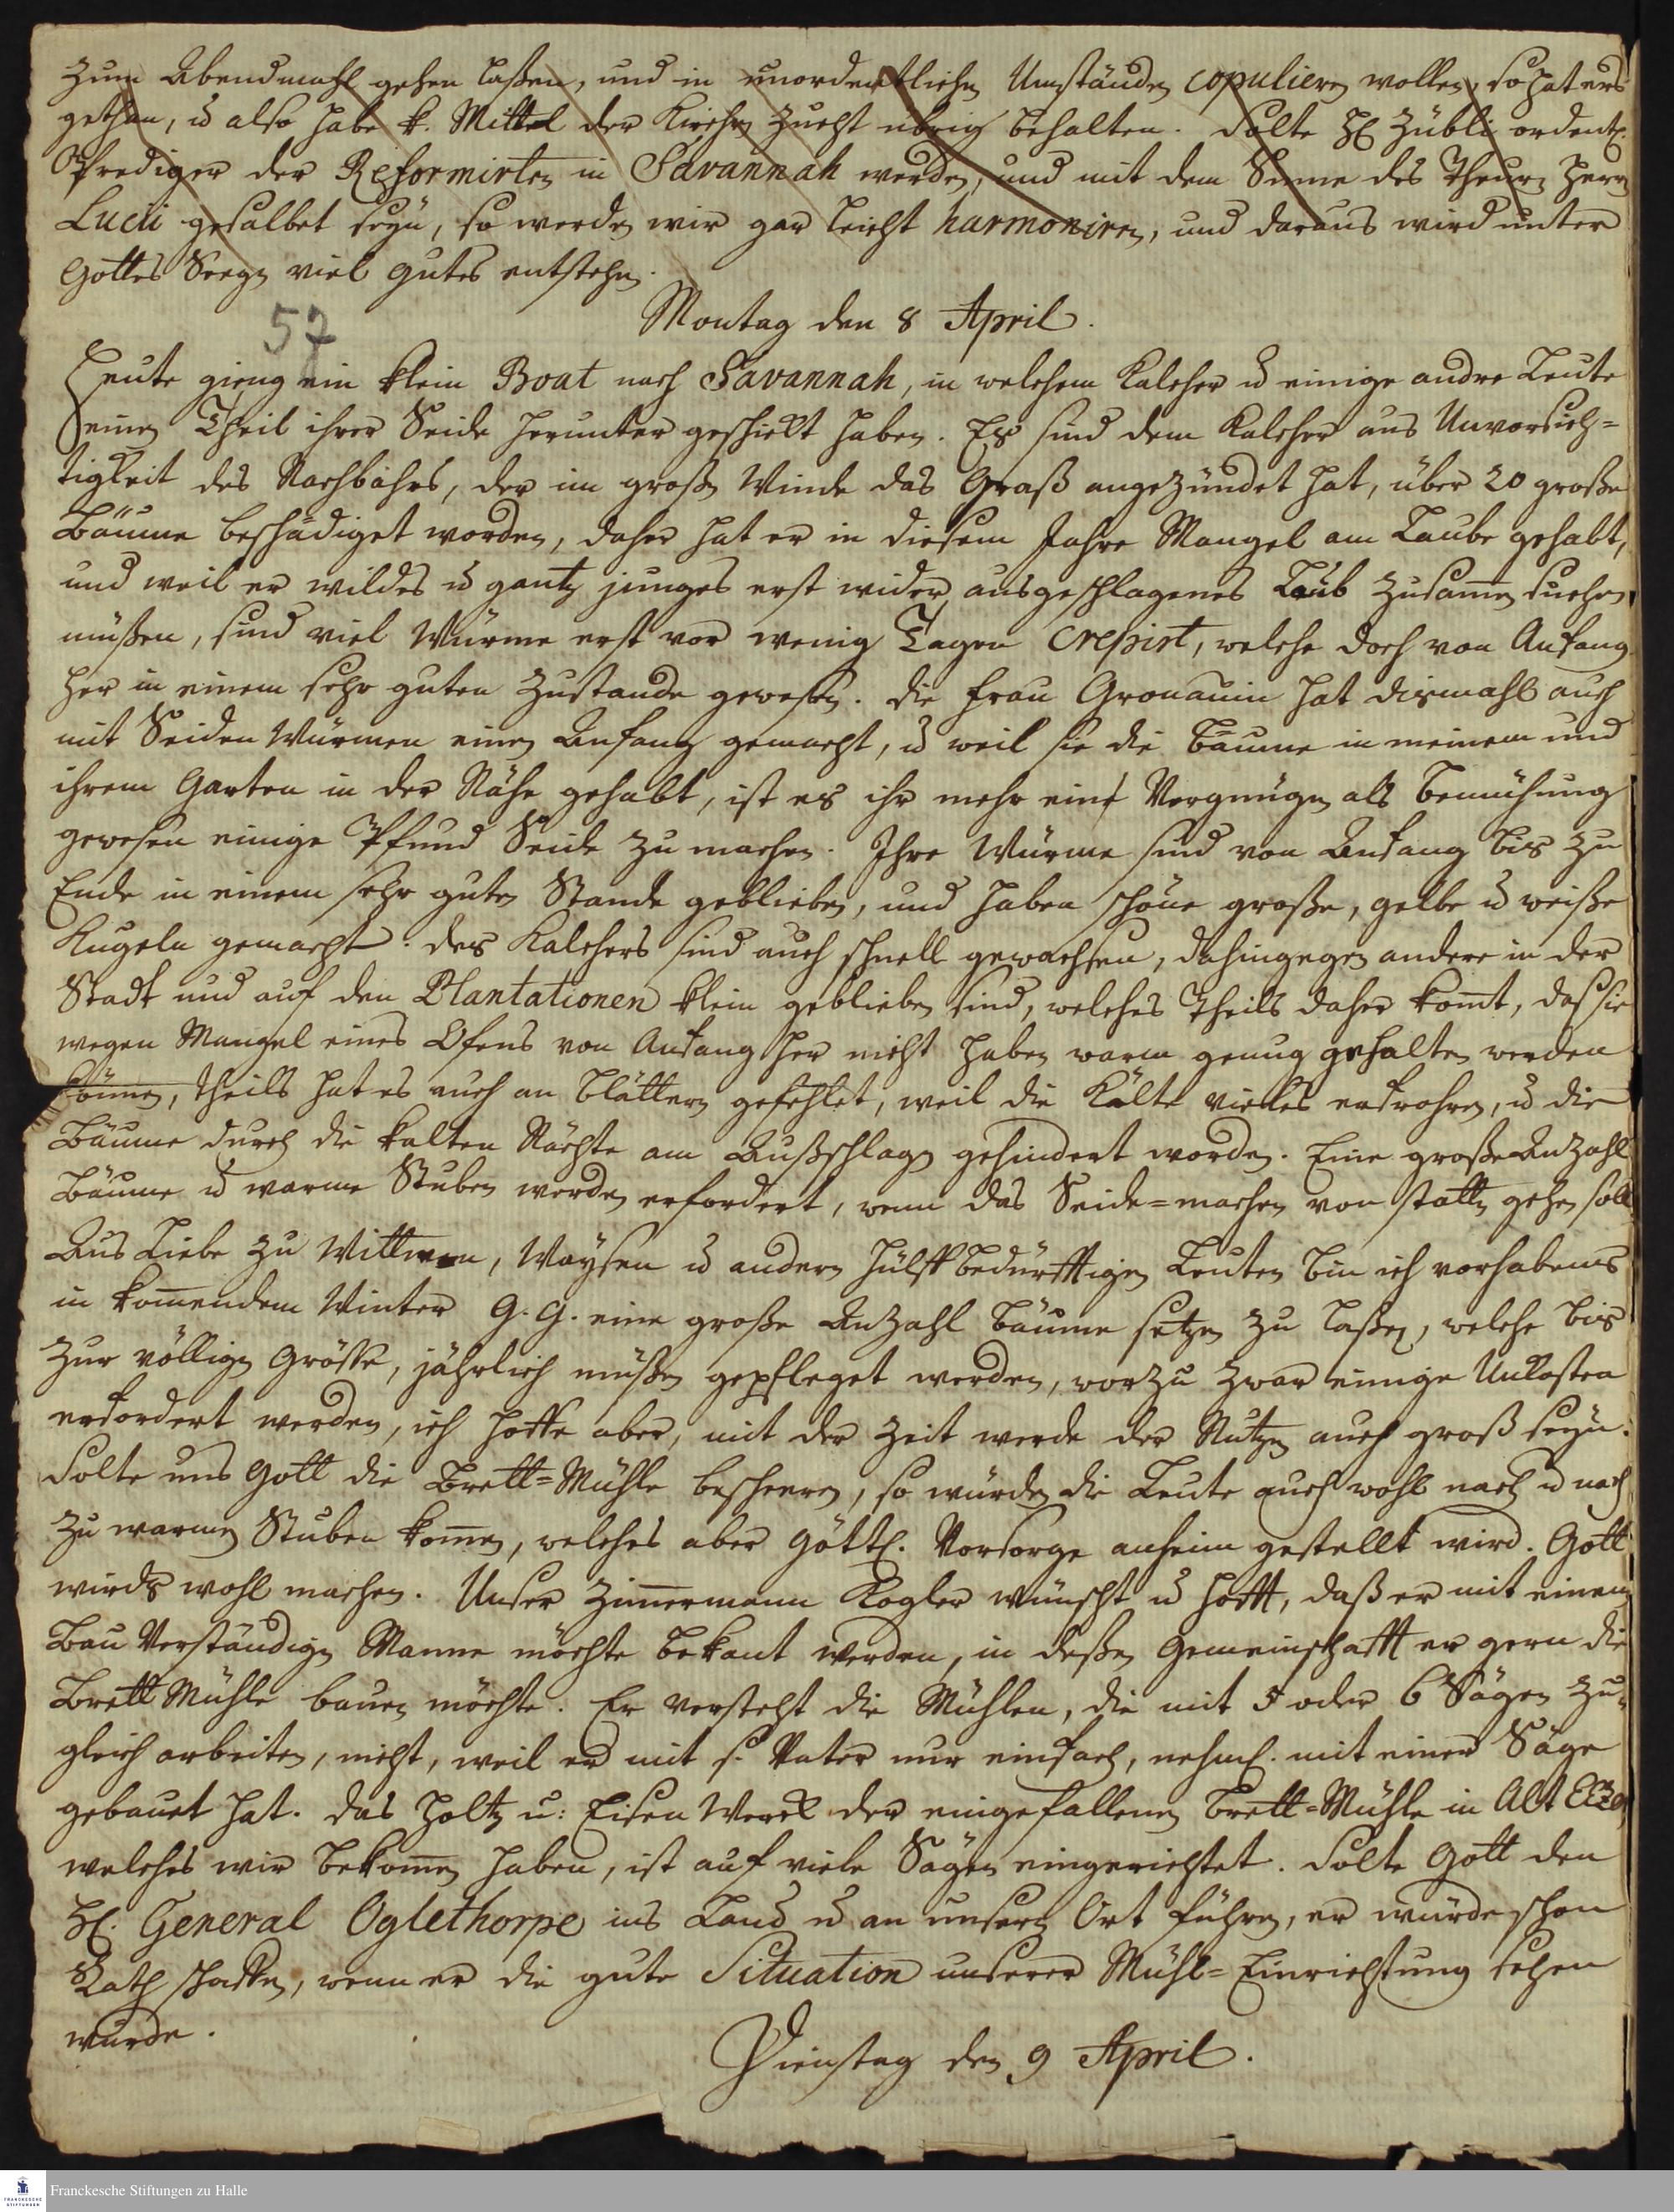 zum Abendmahl gehen laßen, und in unordentlichen Umständen copuliren wollen, so hat ers
gethan, u also habe k. Mittel der Kirchen Zucht übrig behalten. Solte H. Zübli ordentl.
Prediger der Reformirten in Savannah werden, und mit dem Sinne des Theuren Herrn
Lucii gesalbet seyn, so werden wir gar leicht harmoniren, und daraus wird unter
Gottes Seegen viel gutes entstehen.
57
Montag den 8 April.
Heute gieng ein klein Boat nach Savannah, in welchem Kalcher u einige andre Leute
einen Theil ihrer Seide herunter geschickt haben. Es sind dem Kalcher aus Unvorsich=
tigkeit des Nachbahrs, der im großen Winde das Graß angezündet hat, über 20 große
Bäume beschädiget worden, daher hat er in diesem Jahre Mangel am Laube gehabt,
und weil er wildes u gantz junges erst wider ausgeschlagenes Laub zusammen suchen
müßen, sind viel Würme erst vor wenig Tagen crepirt, welche doch von Anfang
her in einem sehr guten Zustande gewesen. Die Frau Gronauin hat dismahl auch
mit Seiden Würmen einen Anfang gemacht, u weil sie die Bäume in meinem und
ihrem Garten in der Nähe gehabt, ist es ihr mehr ein Vergnügen als Bemühung
gewesen einige Pfund Seide zu machen. Ihre Würme sind von Anfang bis zu
Ende in einem sehr guten Stande geblieben, und haben schöne große, gelbe u weiße
Kugeln gemacht. Des Kalchers sind auch schnell gewachsen, dahingegen andere in der
Stadt und auf den Plantationen klein geblieben sind, welches theils daher kommt, daß sie
wegen Mangel eines Ofens von Anfang her nicht haben warm genug gehalten werden
können, theils hat es auch an Blättern gefehlet, weil die Kälte vieles erfrohren, u die
Bäume durch die kalten Nächte am Außschlagen gehindert worden. Eine große Anzahl
Bäume u warme Stuben werden erfordert, wenn das Seide=machen von statten gehen soll.
Aus Liebe zu Wittwen, Waysen u andern hülffbedürfftigen Leuten bin ich vorhabens
in kommendem Winter G. G. eine große Anzahl Bäume setzen zu laßen, welche bis
zur völligen Größe, jährlich müßen gepfleget werden, worzu zwar einige Unkosten
erfordert werden, ich hoffe aber, mit der Zeit werde der Nutzen auch groß seyn.
Solte uns Gott die Brett=Mühle bescheren, so würden die Leute auch wohl nach u nach
zu warmen Stuben kommen, welches aber göttl. Vorsorge anheim gestellt wird. Gott
wirds wohl machen. Unser Zimmermann Kogler wünscht u hofft, daß er mit einem
Bau Verständigen Manne möchte bekant werden, in deßen Gemeinschafft er gern die
Brett Mühle bauen möchte. Er versteht die Mühlen, die mit 5 oder 6 Sägen zu=
gleich arbeiten, nicht, weil er mit s. Vater nur einfach, nehml. mit einer Säge
gebauet hat. Das Holtz u: Eisen Werck der eingefallenen Brett=Mühle in Alt Ebzr,
welches wir bekommen haben, ist auf viele Sägen eingerichtet. Solte Gott den
H. General Oglethorpe ins Land u an unsern Ort führen, er würde schon
Rath schaffen, wenn er die gute Situation unserer Mühl=Einrichtung sehen
wurde.
Dienstag den 9 April.
Franckesche Stiftungen zu Halle
FRANCKESCHE
STIFTUNGEN